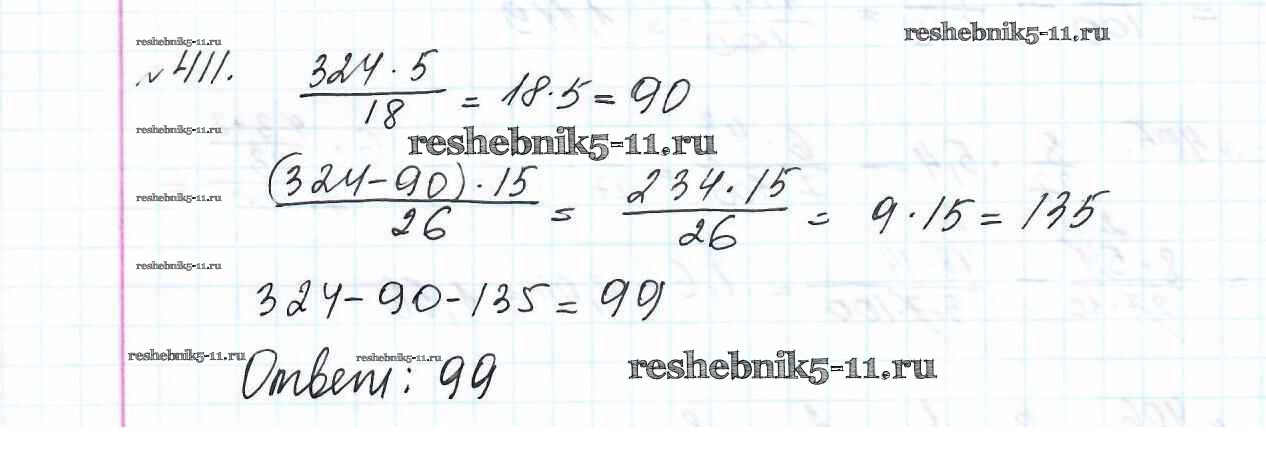 reshebnik5-11.ru
reshebnik5-11.ru
№ 411. 324 · 5 / 18 = 18 · 5 = 90
reshebnik5-11.ru
reshebnik5-11.ru
reshebnik5-11.ru
(324-90) · 15 / 26 = 234 · 15 / 26 = 9 · 15 = 135
reshebnik5-11.ru
324 - 90 - 135 = 99
reshebnik5-11.ru
reshebnik5-11.ru
reshebnik5-11.ru
Ответ: 99